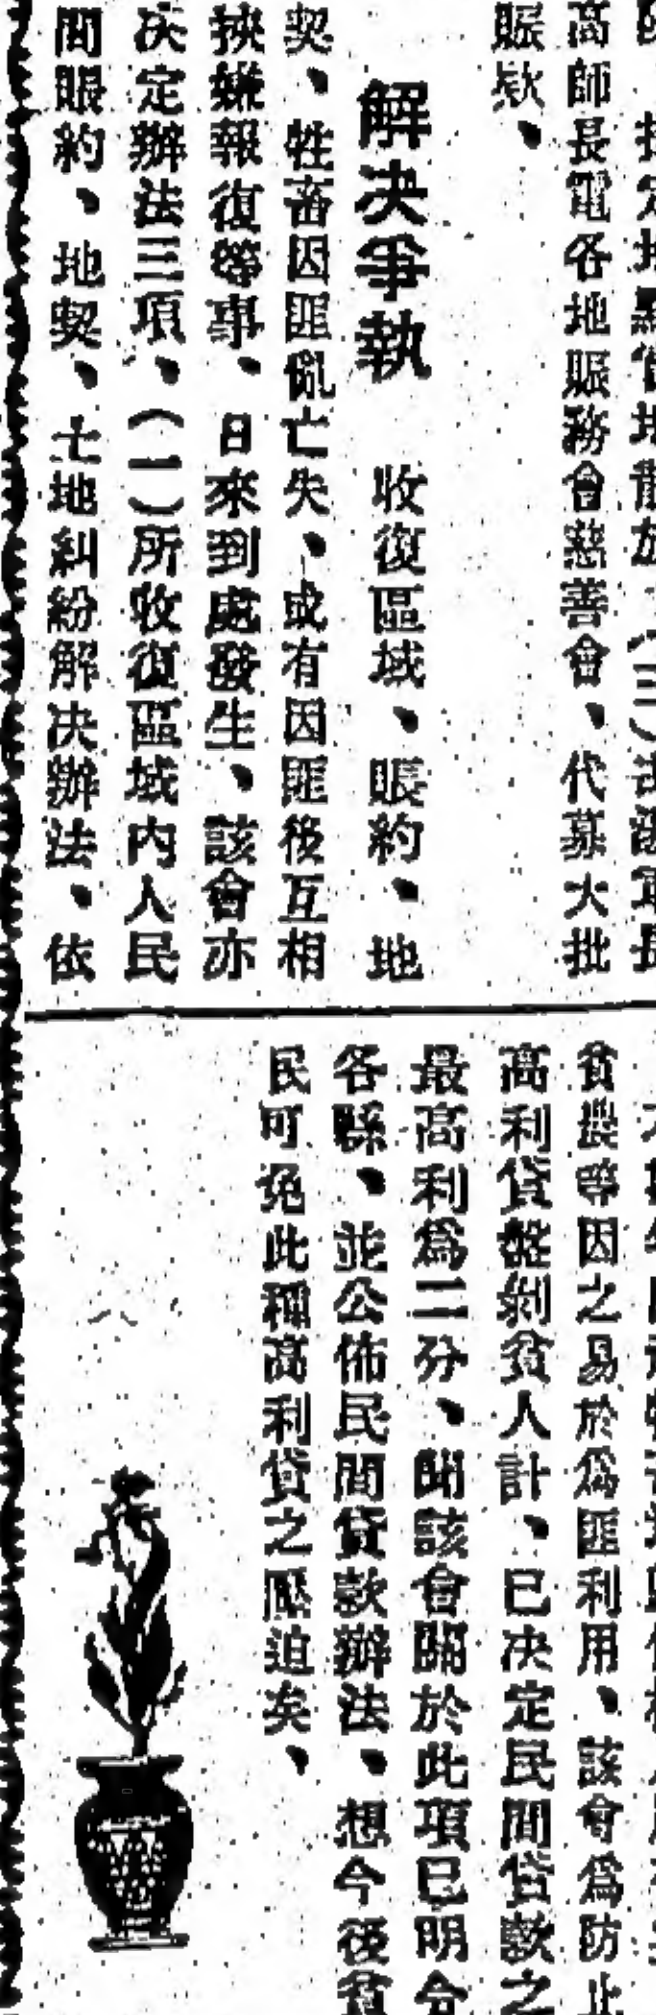 高師長電各地賑務會慈善會、代募大批
賑欵、
解決爭執　收復區域、賬約、地
契、牲畜因匪亂亡失、或有因匪後互相
挾嫌報復等事、日來到處發生、該會亦
決定辦法三項、（一）所收復區域內人民
間賬約、地契、土地糾紛解決辦法、依
貧農等因之易於爲匪利用、該會爲防止
高利貸盤剝貧人計、已決定民間貸款之
最高利爲二分、聞該會關於此項已明令
各縣、並公佈民間貸款辦法、想今後貧
民可免此種高利貸之壓迫矣、